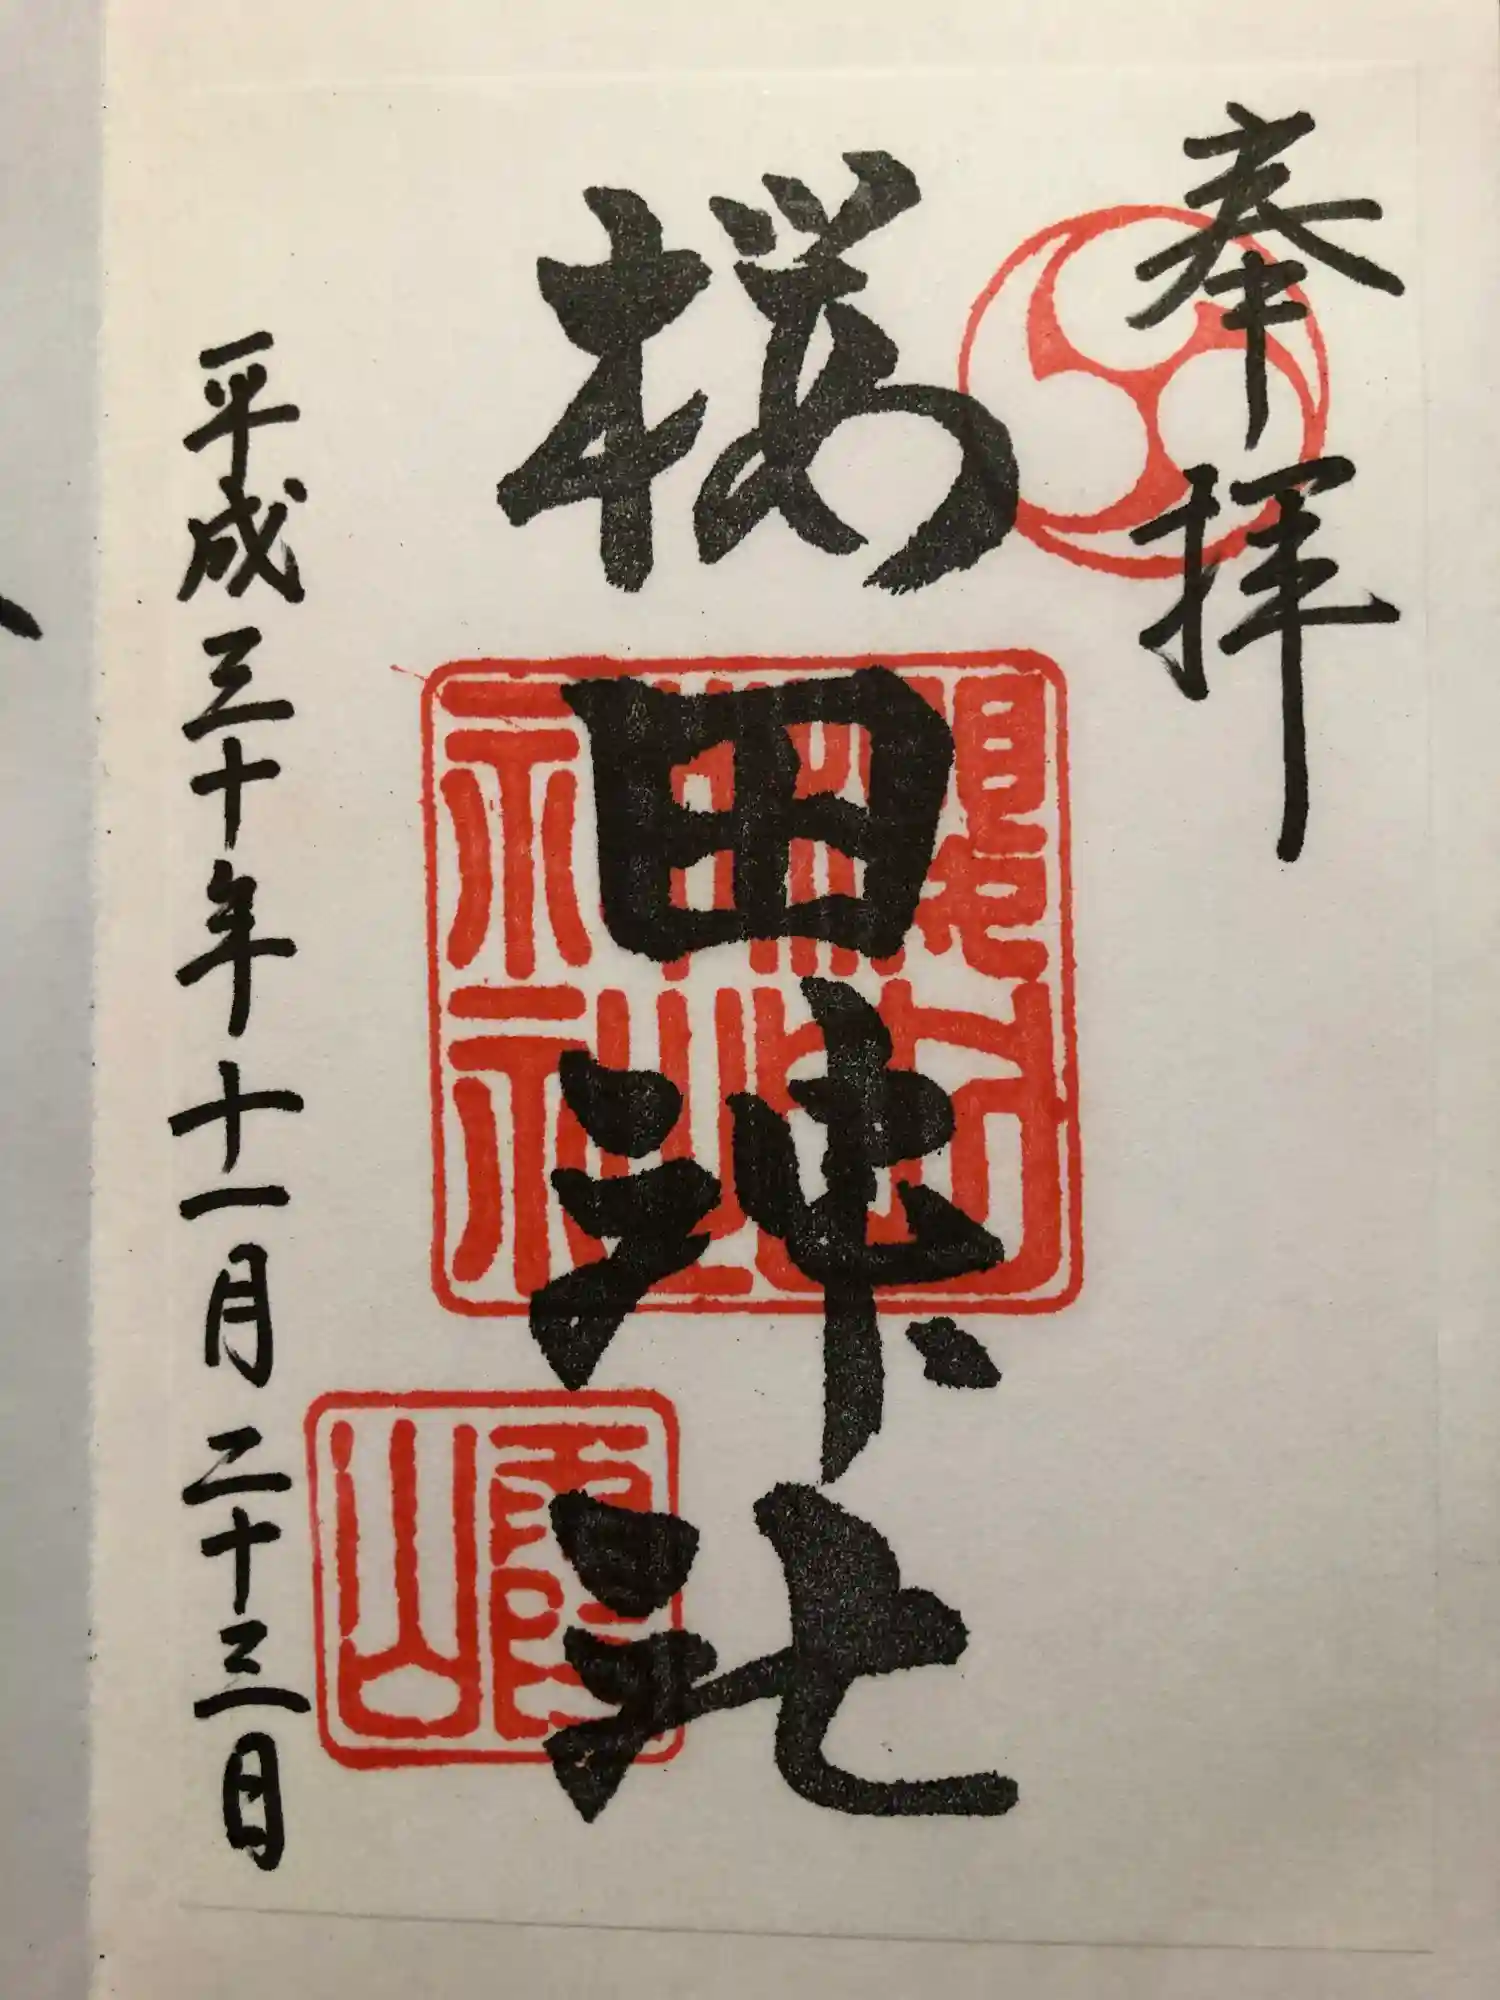 奉拝
桜田神社
平成三十年十一月二十三日
霞山